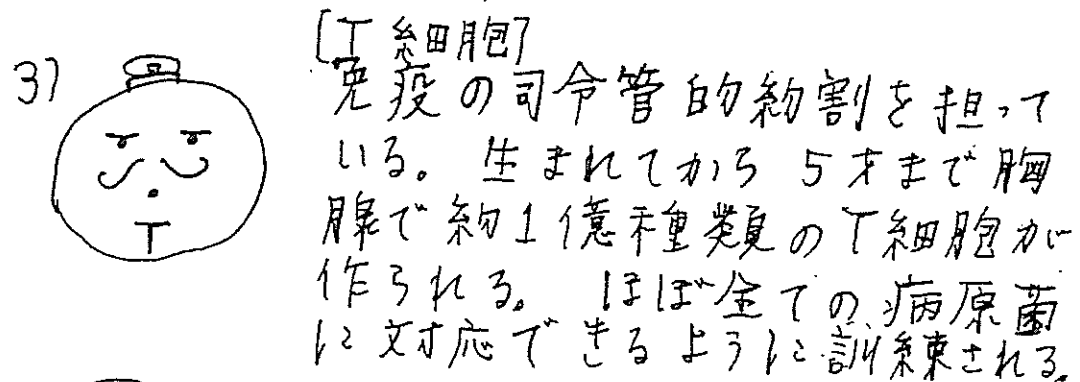 3)
[T細胞]
免疫の司令管的約割を担って
いる。生まれてから5才まで胸
腺で約1億種類のT細胞が
作られる。ほぼ全ての病原菌
に対応できるように訓練される。
T